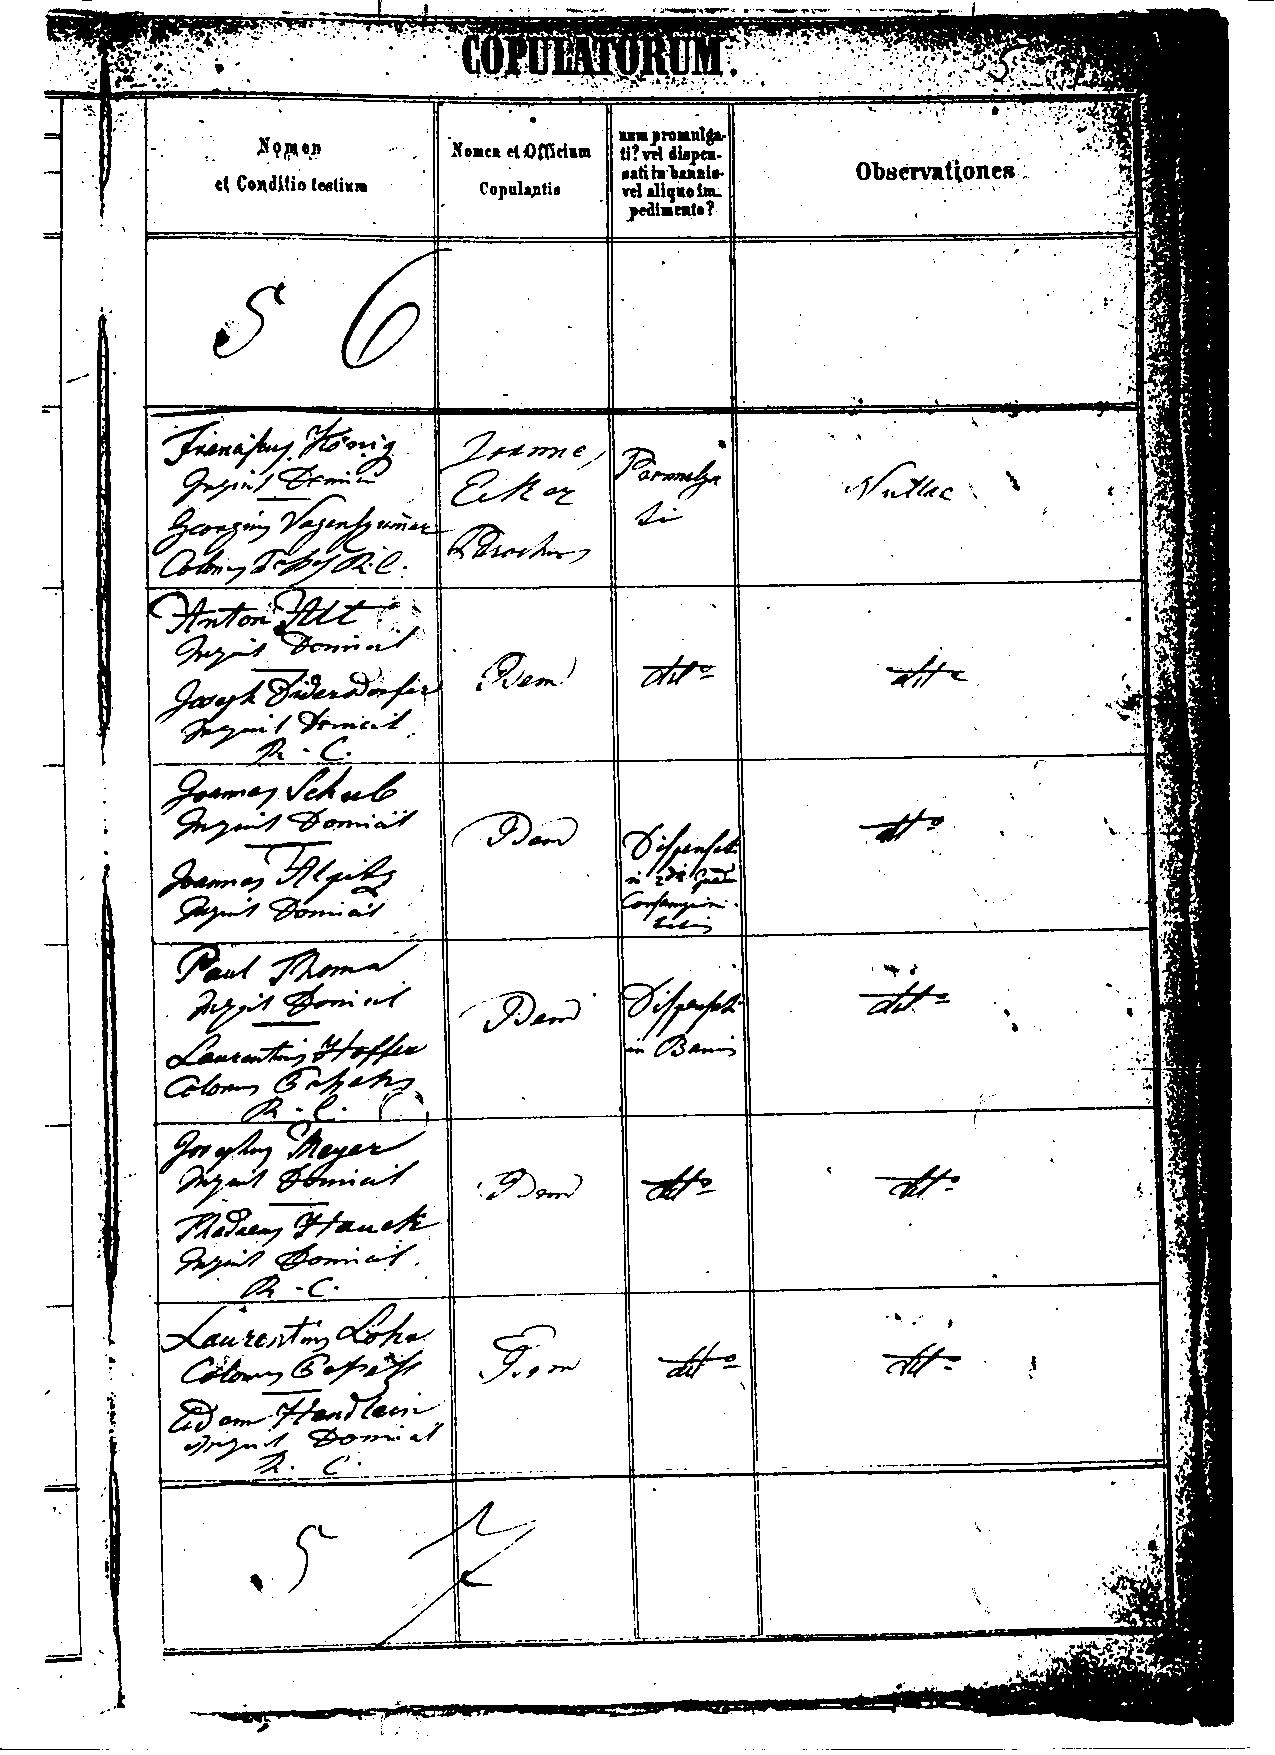 COPULATORUM.
5
Nomen
et Conditio testium
Nomen et Officium
Copulantis
num promulga-
ti? vel dispen-
sati in bannis
vel aliquo im-
pedimento?
Observationes
5 6
König
Inquil Domicil
Georgius
Colonus R. C.
Joannes
Eker
Parochus
Promulga
ti
Nullae
Anton Alt
Inquil Domicil
Joseph
Inquil Domicil
R. C.
Idem
ditto
ditto
Joannes Schub
Inquil Domicil
Joannes
Inquil Domicil
Idem
Dispensati
in 2do gradu
Consangvini
tatis
ditto
Paul Thoma
Inquil Domicil
Laurentius Hoffer
Colonus
R. C.
Idem
Dispensati
in Bannis
ditto
Josephus Meyer
Inquil Domicil
Hauck
Inquil Domicil
R. C.
Idem
ditto
ditto
Laurentius
Colonus
Adam Handlein
Inquil Domicil
R. C.
Idem
ditto
ditto
5 7